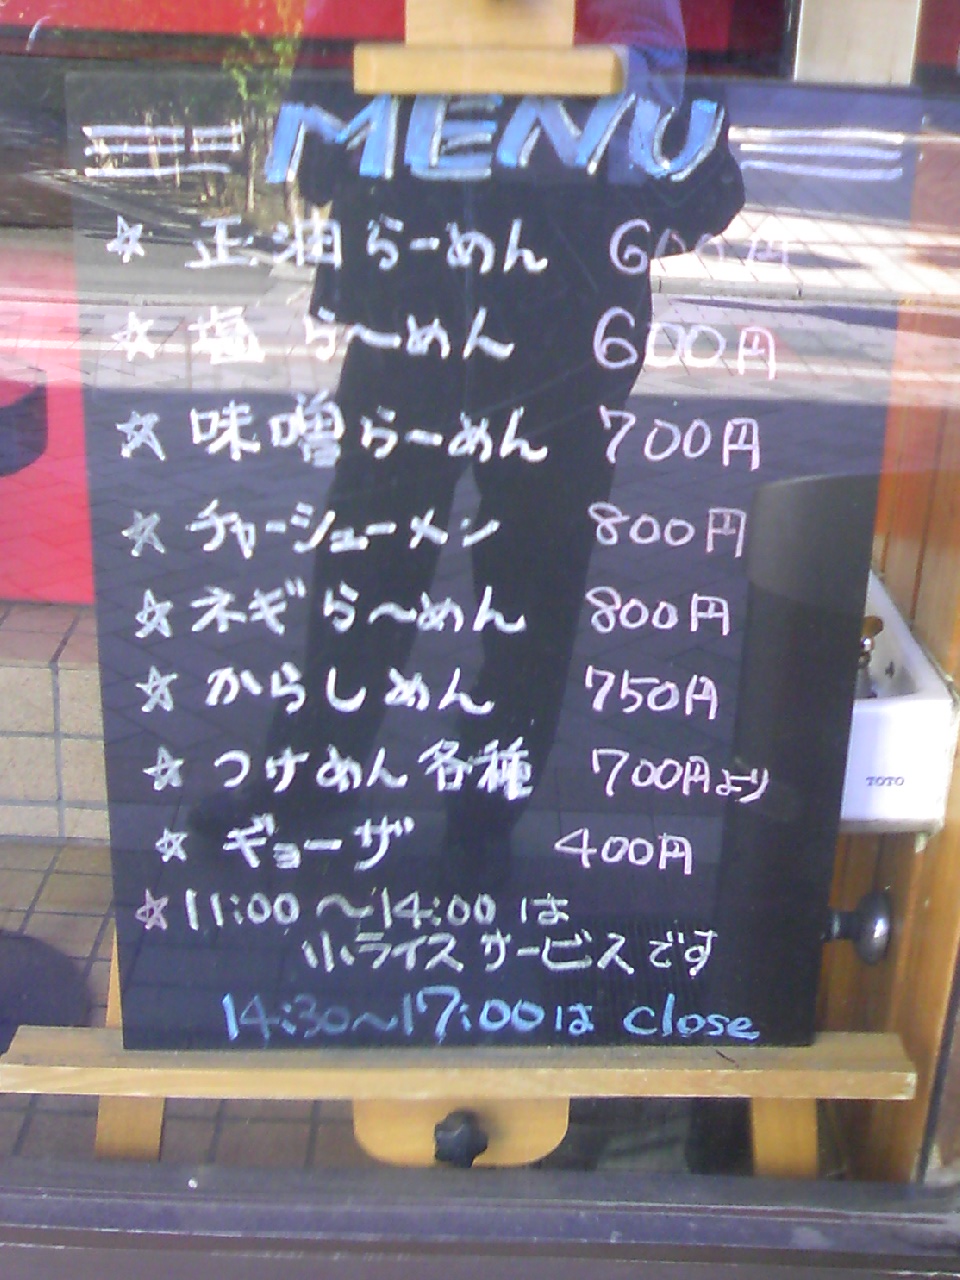 MENU
☆ 正油らーめん 600円
☆ 塩ら〜めん 600円
☆ 味噌らーめん 700円
☆ チャーシューメン 800円
☆ ネギら〜めん 800円
☆ からしめん 750円
☆ つけめん各種 700円より
☆ ギョーザ 400円
☆ 11:00〜14:00は
小ライスサービスです
14:30〜17:00は close
TOTO